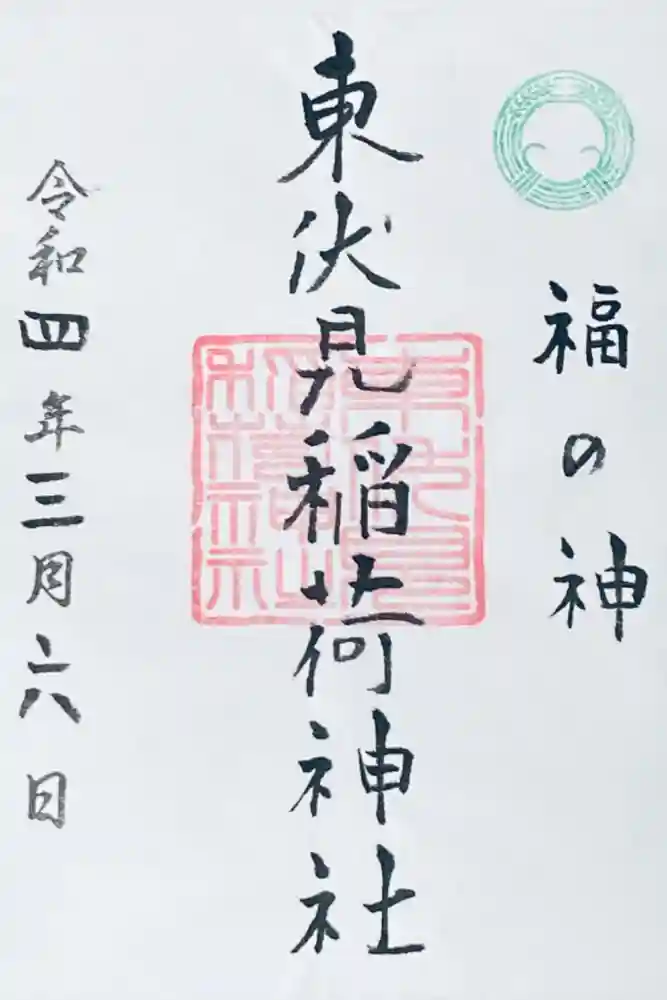 福の神
東伏見稲荷神社
令和四年三月六日